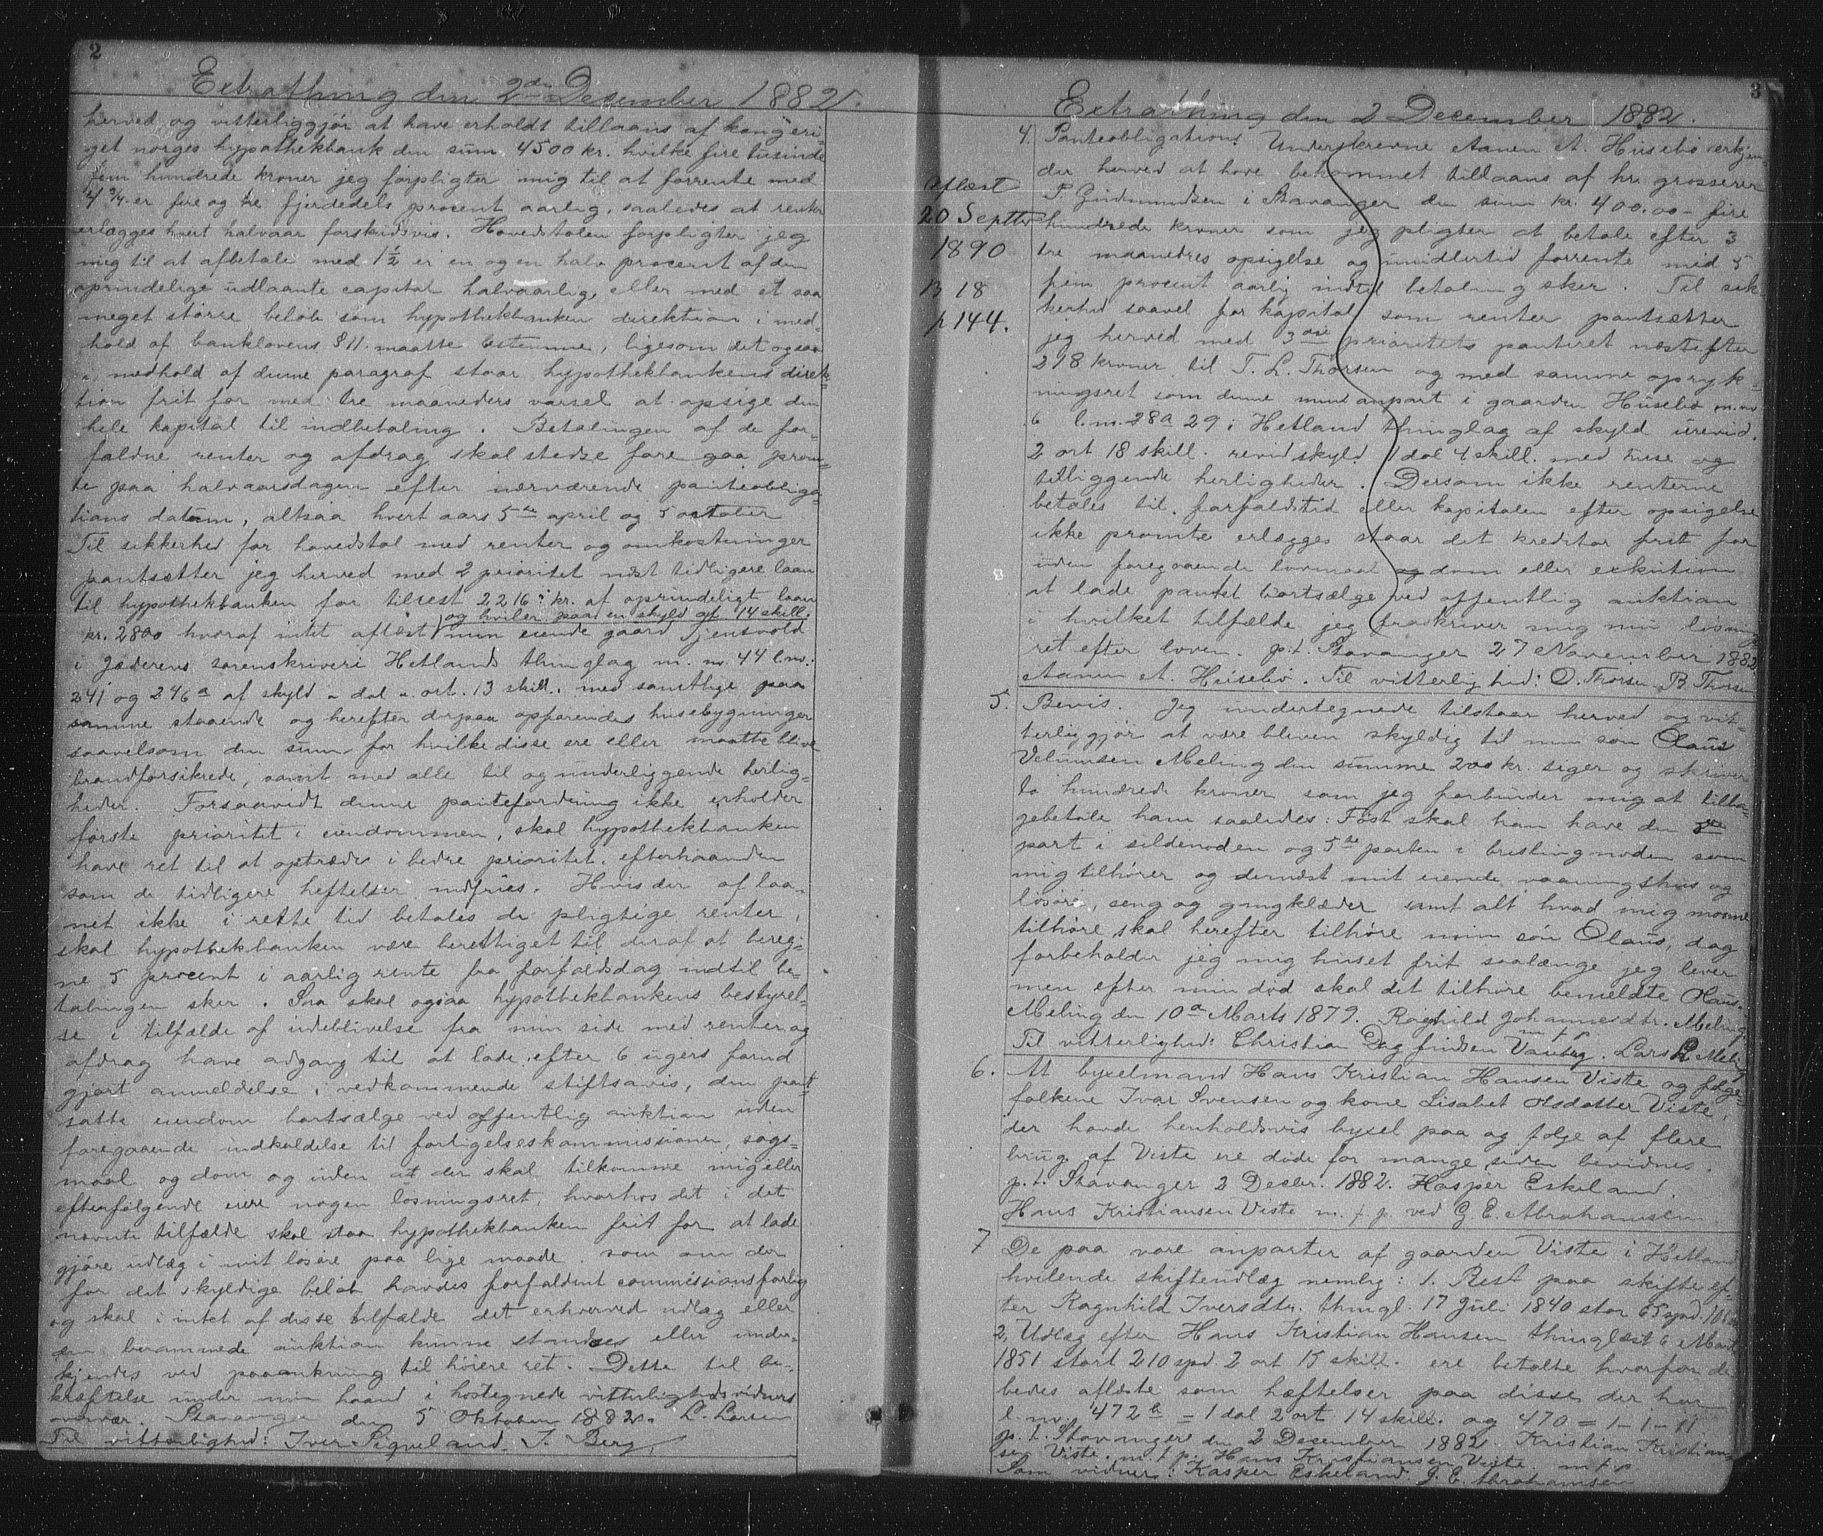 2
Extrathing den 2den Desember 1882.
herved og vitterliggjør at have erholdt tillaans af kongeri-
get norges hypothekbank den sum 4500 kr. hvilke fire tusinde
fem hundrede kroner jeg forpligter mig til at forrente med
4 3/4 er fire og tre fjerdedels procent aarlig, saaledes at renten
erlægges hvert halvaar forskudsvis. Hovedstolen forpligter jeg
mig til at afbetale med 1 1/2 er en og en halv procent af den
oprindelige udlaante capital halvaarlig, eller med et saa
meget større beløb som hypothekbankens direktion i med-
hold af banklovens § 11. maatte bestemme, ligesom det ogsaa
i medhold af denne paragraf staar hypothekbankens direk-
tion frit for med tre maaneders varsel at opsige den
hele kapital til indbetaling. Betalingen af de for-
faldne renter og afdrag skal stedse fore gaa prom-
te paa halvaarsdagen efter nærværende panteobliga-
tions datum, altsaa hvert aars 5te april og 5 october
Til sikkerhed for hovedstol med renter og omkostninger
pantsætter jeg herved med 2 prioritet næst tidligere laan
til hypothekbanken for tilrest 2216 kr. af oprindeligt laan
og hviler paa en skyld af 14 skill.
kr. 2800 hvoraf intet aflæst min eiende gaard Tjensvold
i Jæderens sorenskriveri Hetlands thinglag m. no. 44 l. no.
241 og 246a af skyld " dal " ort. 13 skill. med samtlige paa
samme staaende og herefter derpaa opførendes husebygninger
saavelsom den sum for hvilke disse ere eller maatte blive
brandforsikrede, samt med alle til og underliggende herlig-
heder. Forsaavidt denne pantefordring ikke erholder
første prioritet i eiendommen, skal hypothekbanken
have ret til at optræde i bedre prioritet efterhaanden
som de tidligere heftelser indfries. Hvis der af laa-
net ikke i rette tid betales de pligtige renter,
skal hypothekbanken være berettiget til deraf at bereg-
ne 5 procent i aarlig rente fra forfaldsdag indtil be-
talingen sker. Saa skal ogsaa hypothekbankens bestyrel-
se i tilfælde af udeblivelse fra min side med renter og
afdrag have adgang til at lade efter 6 ugers forud
gjort anmeldelse i vedkommende stiftsavis, den pant
satte eiendom bortsælge ved offentlig auktion uden
foregaaende indkaldelse til forligelseskommissionen, sogs-
maal og dom og uden at der skal tilkomme mig eller
efterfølgende eiere nogen løsningsret, hvorhos det i det
nævnte tilfælde skal staa hypothekbanken frit for at lade
gjøre udlæg i mit løsøre paa lige maade som om der
for det skyldige beløb havdes forfaldent commissionsforlig
og skal i intet af disse tilfælde det erhverved udlæg eller
den berammede auktion kunne standses eller under-
kjendes ved paaankning til høiere ret. Dette til be-
kræftelse under min haand i hostegnede vitterlighedsvidners
overvær. Stavanger den 5 Oktober 1882. L. Larsen
Til vitterlighed: Iver Siqveland. T. Berg.
3
Extrathing den 2 December 1882.
Aflæst
20 Septbr
1890
B 18
p 144.
4. Panteobligation. Underskrevne Aanen A. Husebø erkjen-
der herved at have bekommet tillaans af hr. grosserer
P. Gudmundsen i Stavanger den sum kr. 400.00 – fire
hundrede kroner som jeg pligter at betale efter 3
tre maaneders opsigelse og imidlertid forrente med 5
fem procent aarlig indtil betaling sker. Til sik-
kerhed saavel for kapital som renter pantsætter
jeg herved med 3die prioritets panteret næstefter
218 kroner til T. L. Thorsen og med samme opryk-
ningsret som denne min anpart i gaarden Husebø m. no
6 l. no. 28a 29 i Hetland thinglag af skyld urevid.
2 ort 18 skill. revid skyld 1 dal 4 skill. med huse og
tilliggende herligheder. Dersom ikke renterne
betales til forfaldstid eller kapitalen efter opsigelse
ikke promte erlægges staar det kreditor frit for
uden foregaaende lovmaal og dom eller exkution
at lade pantet bortsælge ved offentlig auktion
i hvilket tilfælde jeg fraskriver mig min løsnings
ret efter loven. p.t. Stavanger 27 November 1882
Aanen A. Husebø. Til vitterlighed: O. Thorsen B. Thorsen
5. Bevis. Jeg undertegnede tilstaar herved og vit-
terliggjør at være bleven skyldig til min søn Olaus
Velumsen Meling den summe 200 kr. siger og skriver
to hundrede kroner som jeg forbinder mig at tilba-
gebetale ham saaledes: Først skal han have den 5te
part i sildenoden og 5te parten i bristingnoden som
mig tilhører og dernæst mit eiende vaaningshus og
løsøre, seng og gangklæder samt alt hvad mig monne
tilhøre skal herefter tilhøre min søn Olaus, dog
forbeholder jeg mig huset frit saalænge jeg lever
men efter min død skal det tilhøre bemeldte Olaus.
Meling den 10de Marts 1879. Ragnhild Johannesdtr. Meling
m f p
Til vitterlighed: Christian Dag findsen Vauberg. Lars L Meling
6. At byxelmand Hans Kristian Hansen Viste og følge-
folkene Ivar Svensen og kone Lisabet Olsdatter Viste,
der havde henholdsvis byxel paa og følge af flere
brug af Viste ere døde for mange siden bevidnes.
p.t. Stavanger 2 Decbr. 1882. Kasper Eskeland.
Hans Kristiansen Viste m. f. p. ved G. E. Abrahamsen
7 De paa vore anparter af gaarden Viste i Hetland
hvilende skifteudlæg nemlig: 1. Rest paa skifte ef-
ter Ragnhild Iversdtr. thingl. 17 Juli 1840 stor 65 spd.
2, Udlæg efter Hans Kristian Hansen thinglæst 6 Marts
1851 stort 210 spd. 2 ort 15 skill. ere betalte hvorfor de
bedes aflæste som hæftelser paa disse der har
l. no. 472b = 1 dal 2 ort 14 skill. og 470 = 1-1-11
p.t. Stavanger den 2 December 1882. Kristian Kristian-
sen Viste. m. f. p. Hans Kristiansen Viste m f p
Som vidner: Kasper Eskeland G. E. Abrahamsen